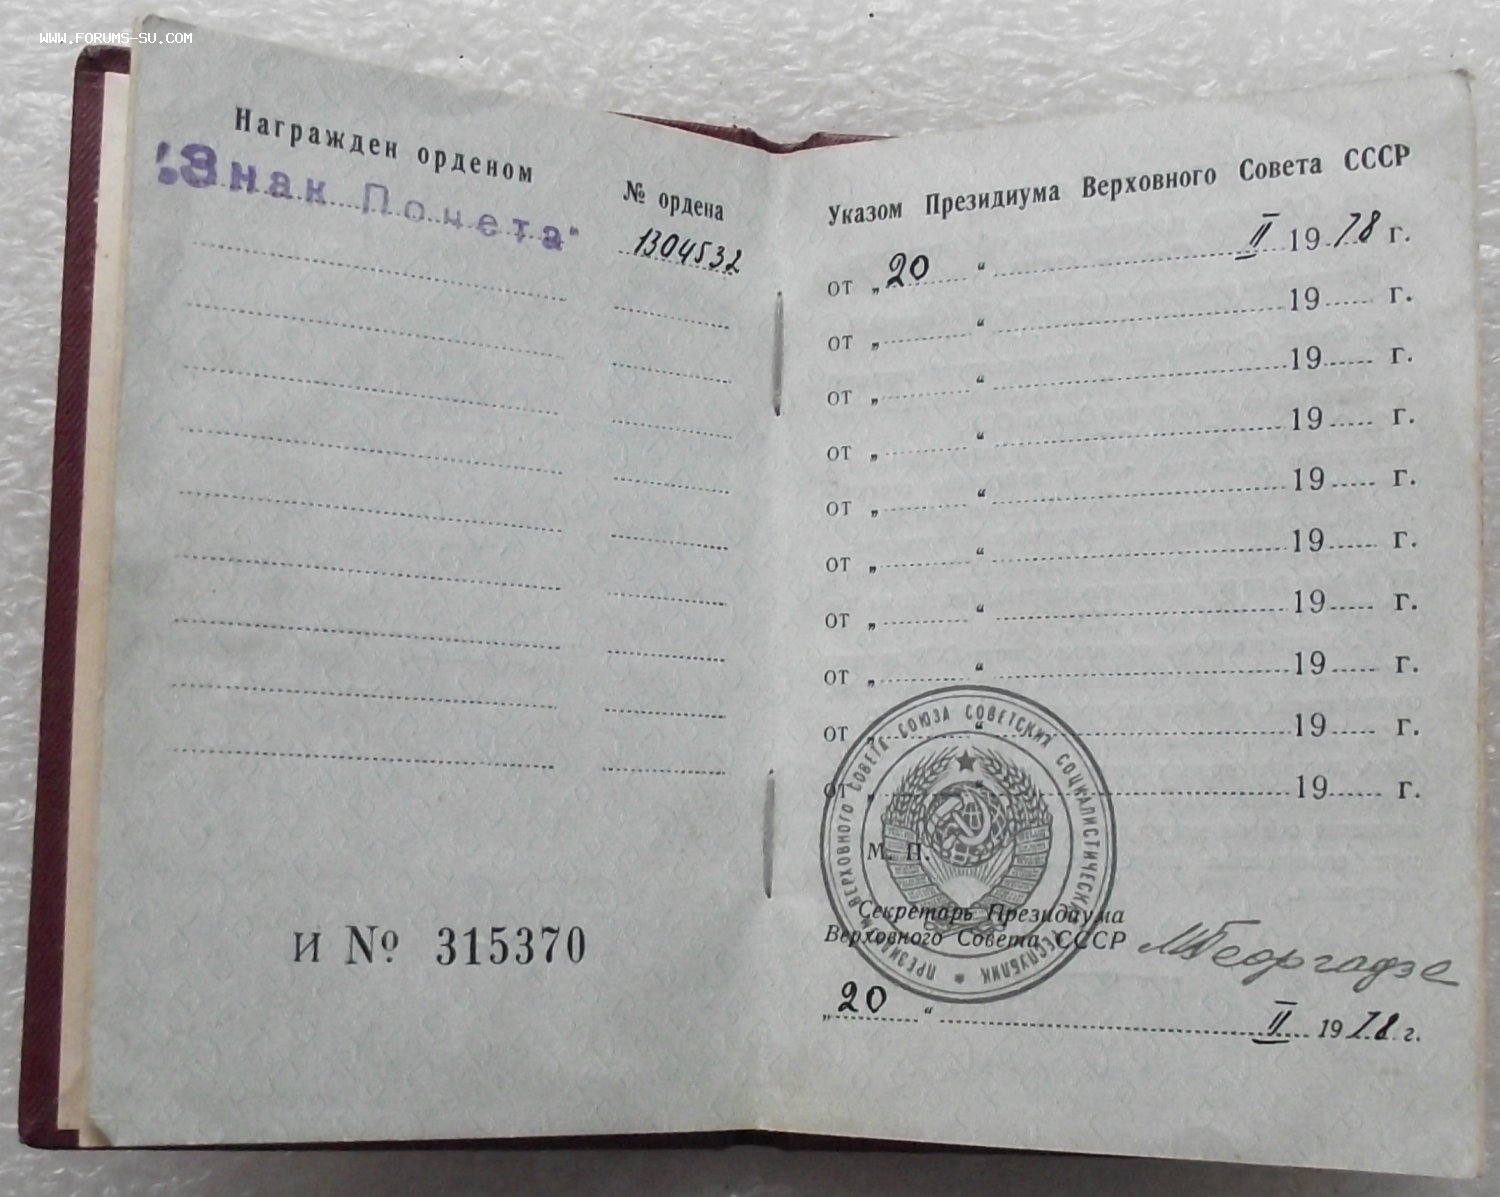 WWW.FORUMS-SU.COM
Награжден орденом
"Знак Почета"
№ ордена
1304532
И № 315370
Указом Президиума Верховного Совета СССР
от „20“ II 1978 г.
от „ “ 19 г.
от „ “ 19 г.
от „ “ 19 г.
от „ “ 19 г.
от „ “ 19 г.
от „ “ 19 г.
от „ “ 19 г.
от „ “ 19 г.
от „ “ 19 г.
ПРЕЗИДИУМ ВЕРХОВНОГО СОВЕТА СОЮЗА СОВЕТСКИХ СОЦИАЛИСТИЧЕСКИХ РЕСПУБЛИК
М. П.
Секретарь Президиума
Верховного Совета СССР
МГеоргадзе
„20“ II 1978 г.